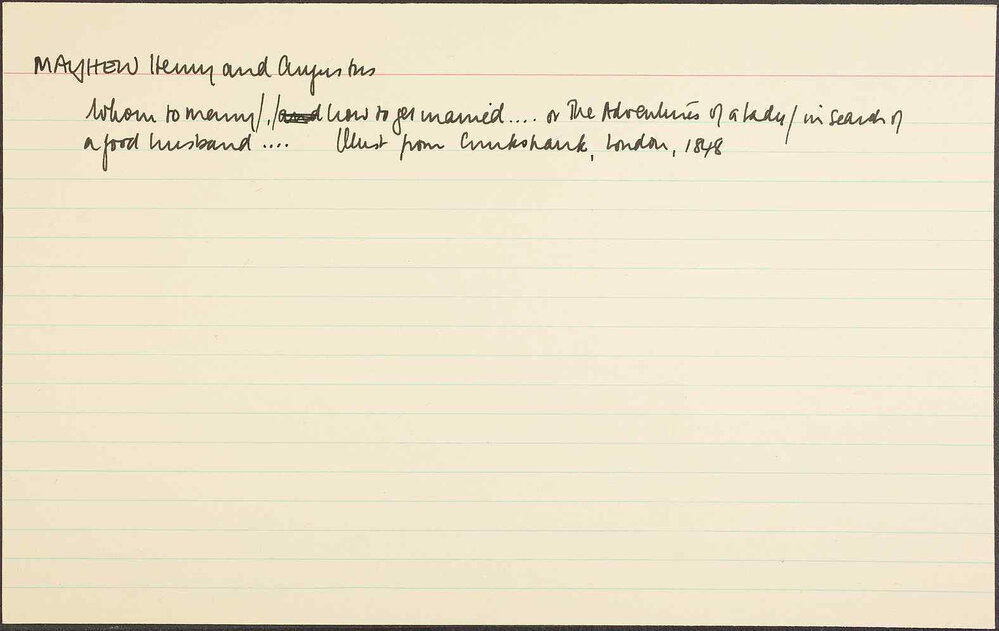 MAYHEW Henry and Augustus
Whom to marry /,/ and how to get married.... or The Adventures of a Lady / in search of
a good husband .... Illust from Cruikshank, London, 1848